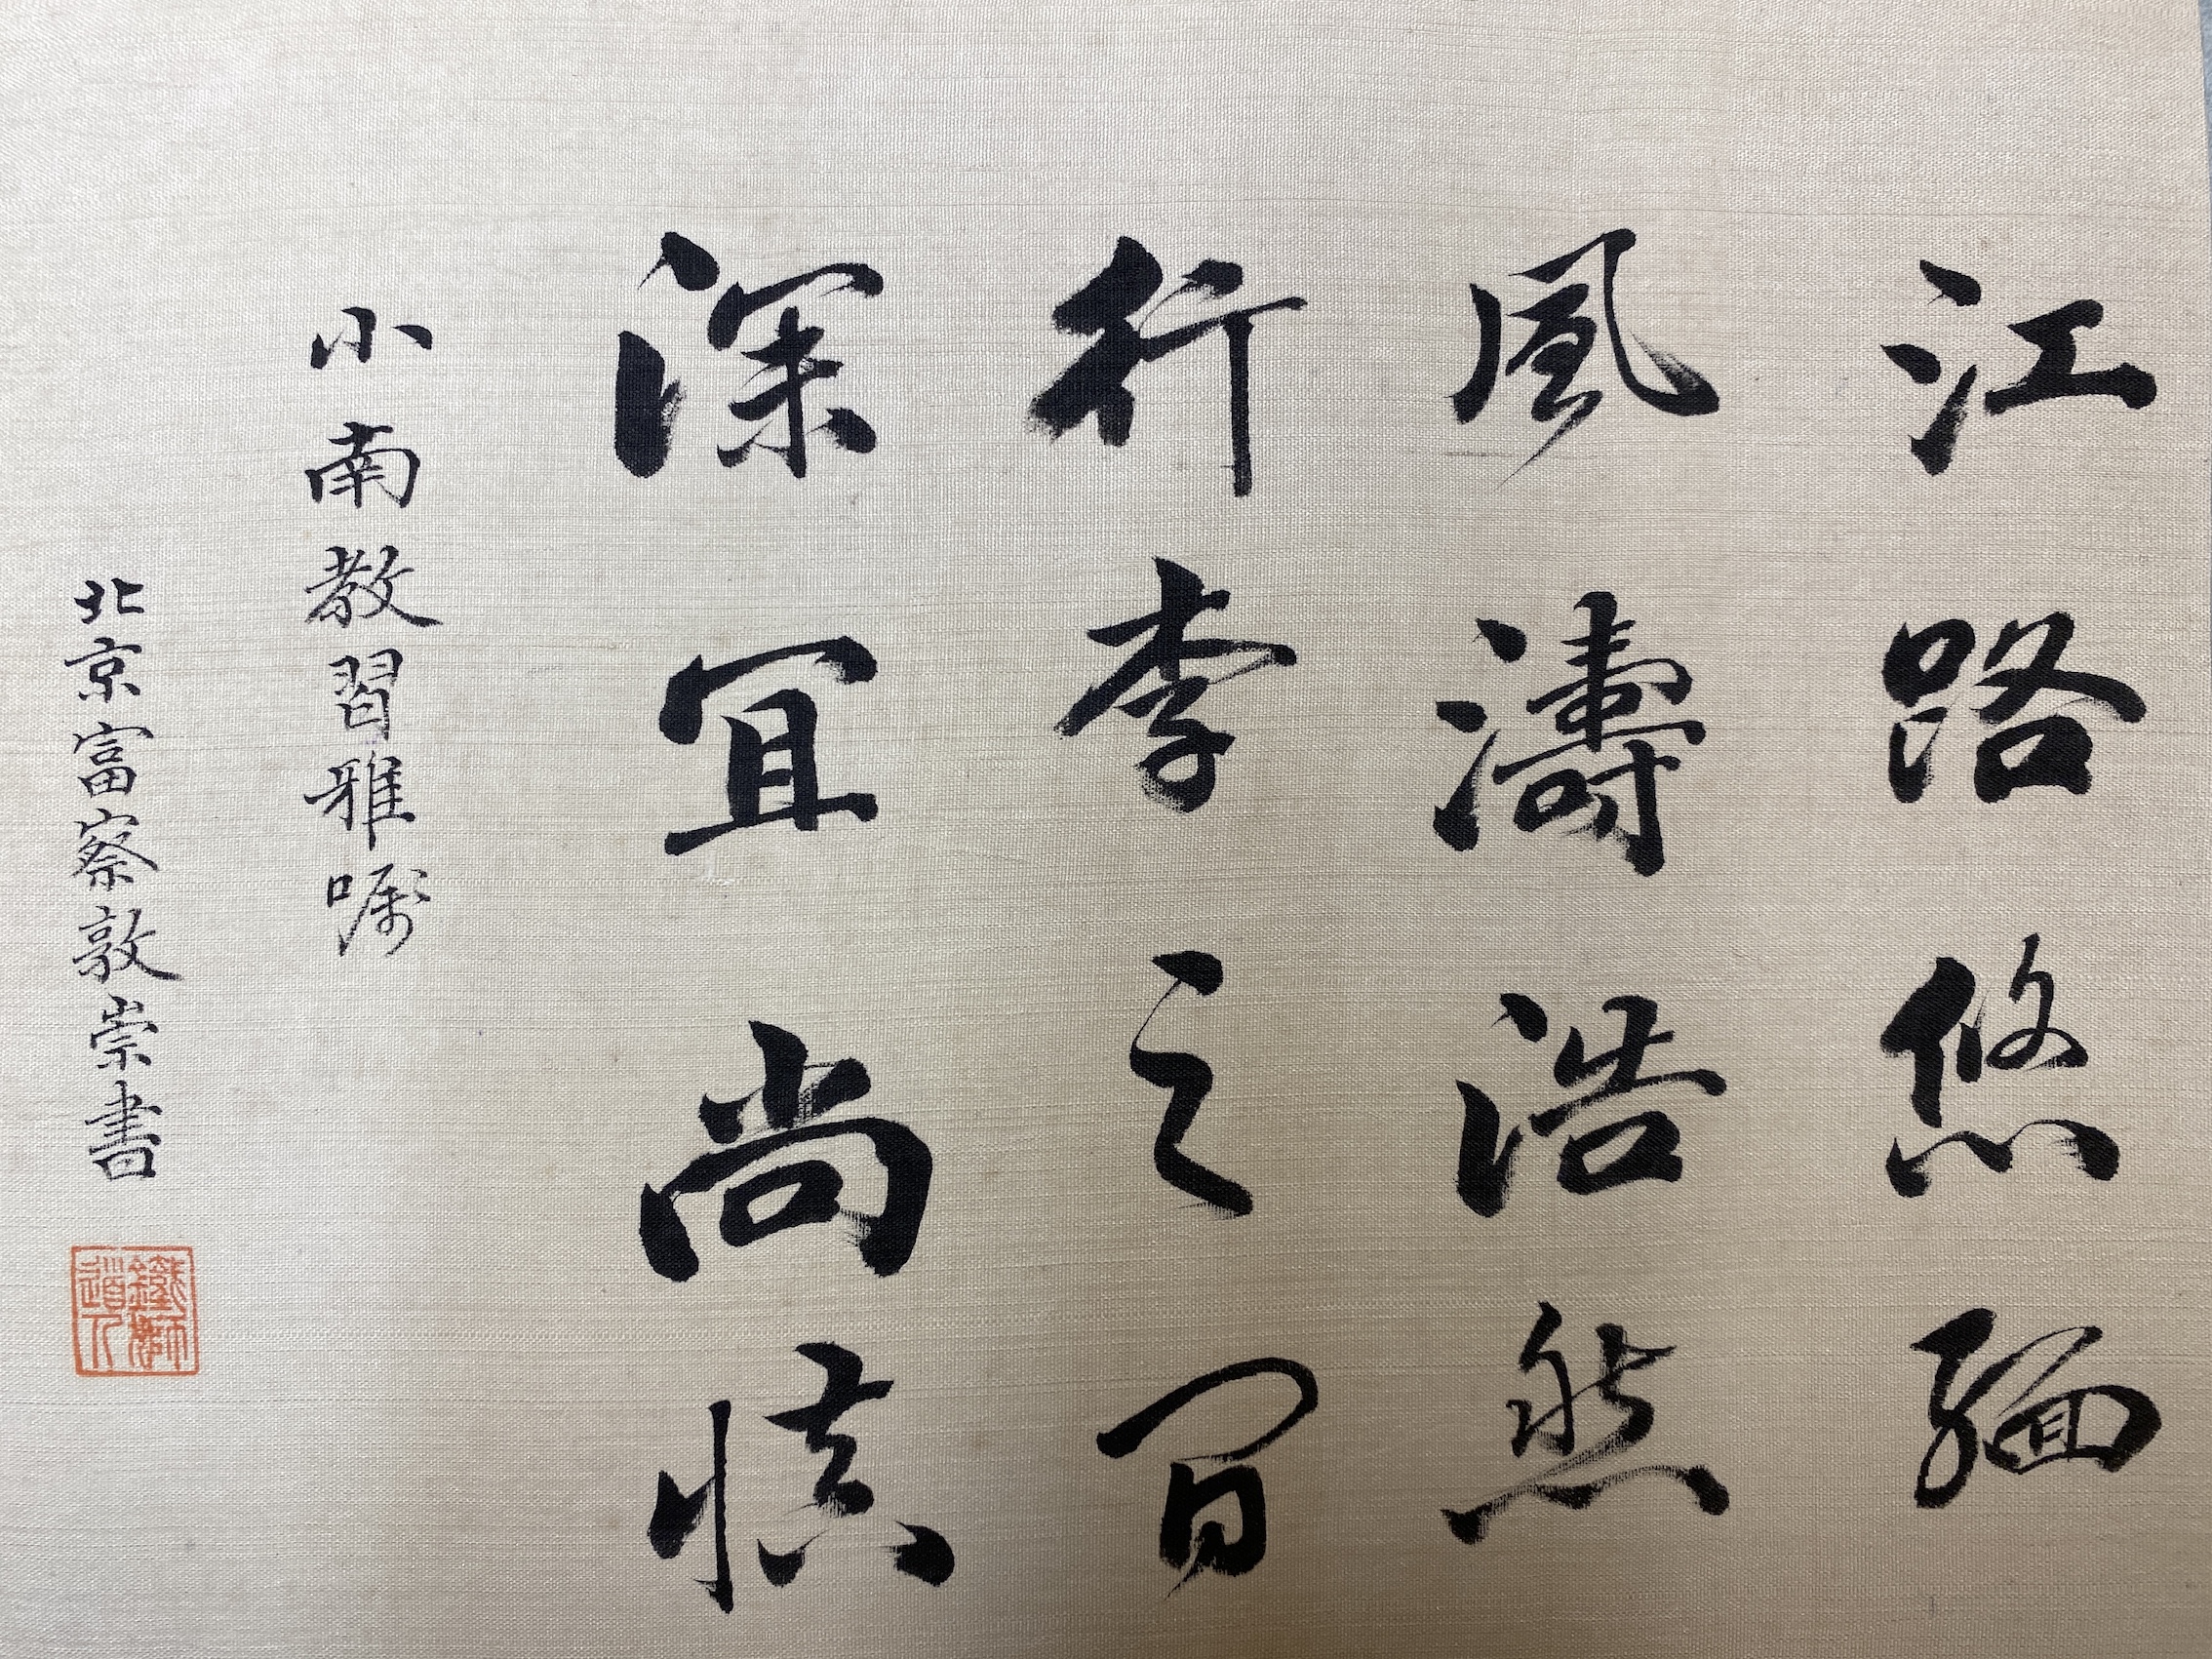 江路悠緬
風濤浩然
行李之間
深宜尚慎
小南教習雅嘱
北京富察敦崇書
鐵獅道人